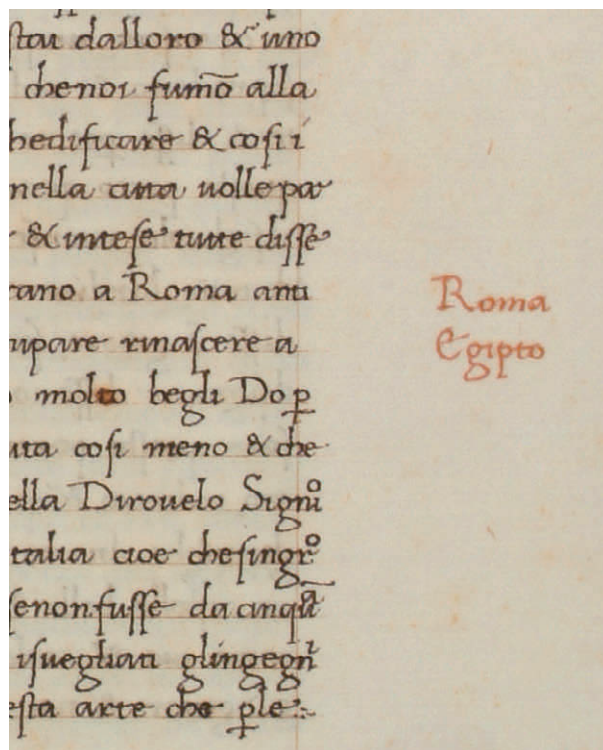 stati dalloro & uno
chenoi fumō alla
hedificare & cosi i
nella citta uolle par
& intese tutte disse
tano a Roma anti
upare rinascere a
molto begli Do p̱
uta cosi meno & che
ella Dirouelo Signᵒi
talia cioe chesingrᵒ
senonfusse da cinquāᵗ
isuegliati glingegnⁱ
esta arte che p̱le
Roma
Egipto